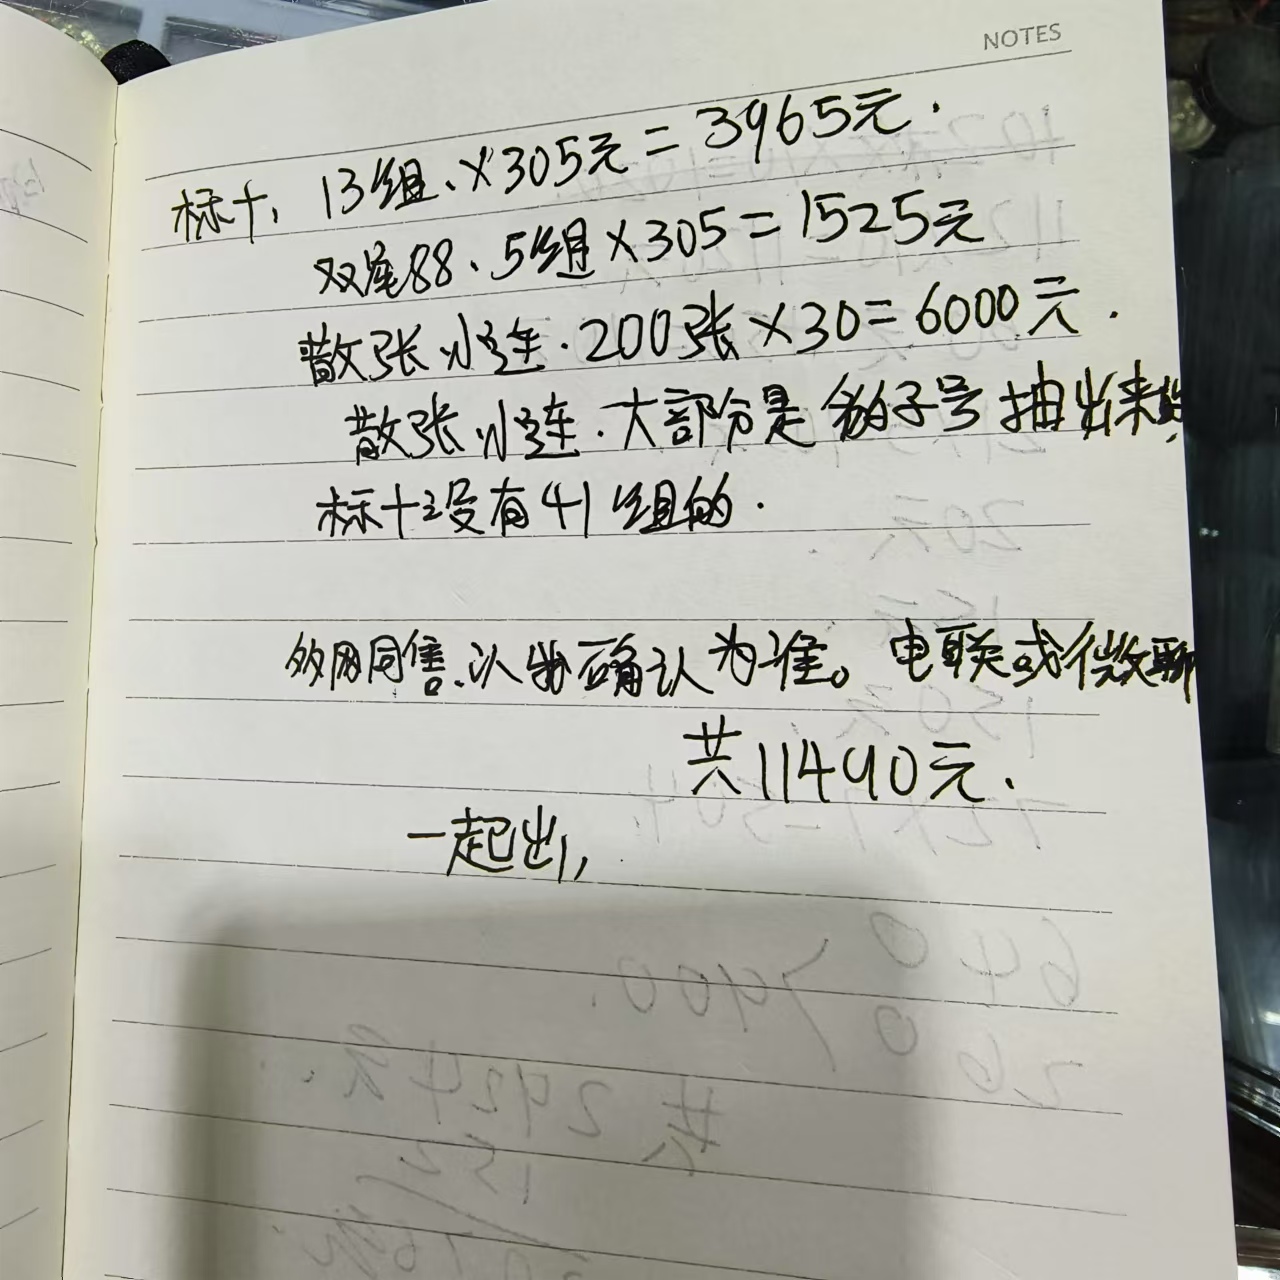 NOTES
标十, 13组、×305元=3965元.
双尾88、5组×305=1525元
散张小连.200张×30=6000元.
散张小连.大部分是豹子号抽出来的
标十没有41组的.
多网同售.以最确认为准。电联或微聊
共11490元.
一起出,